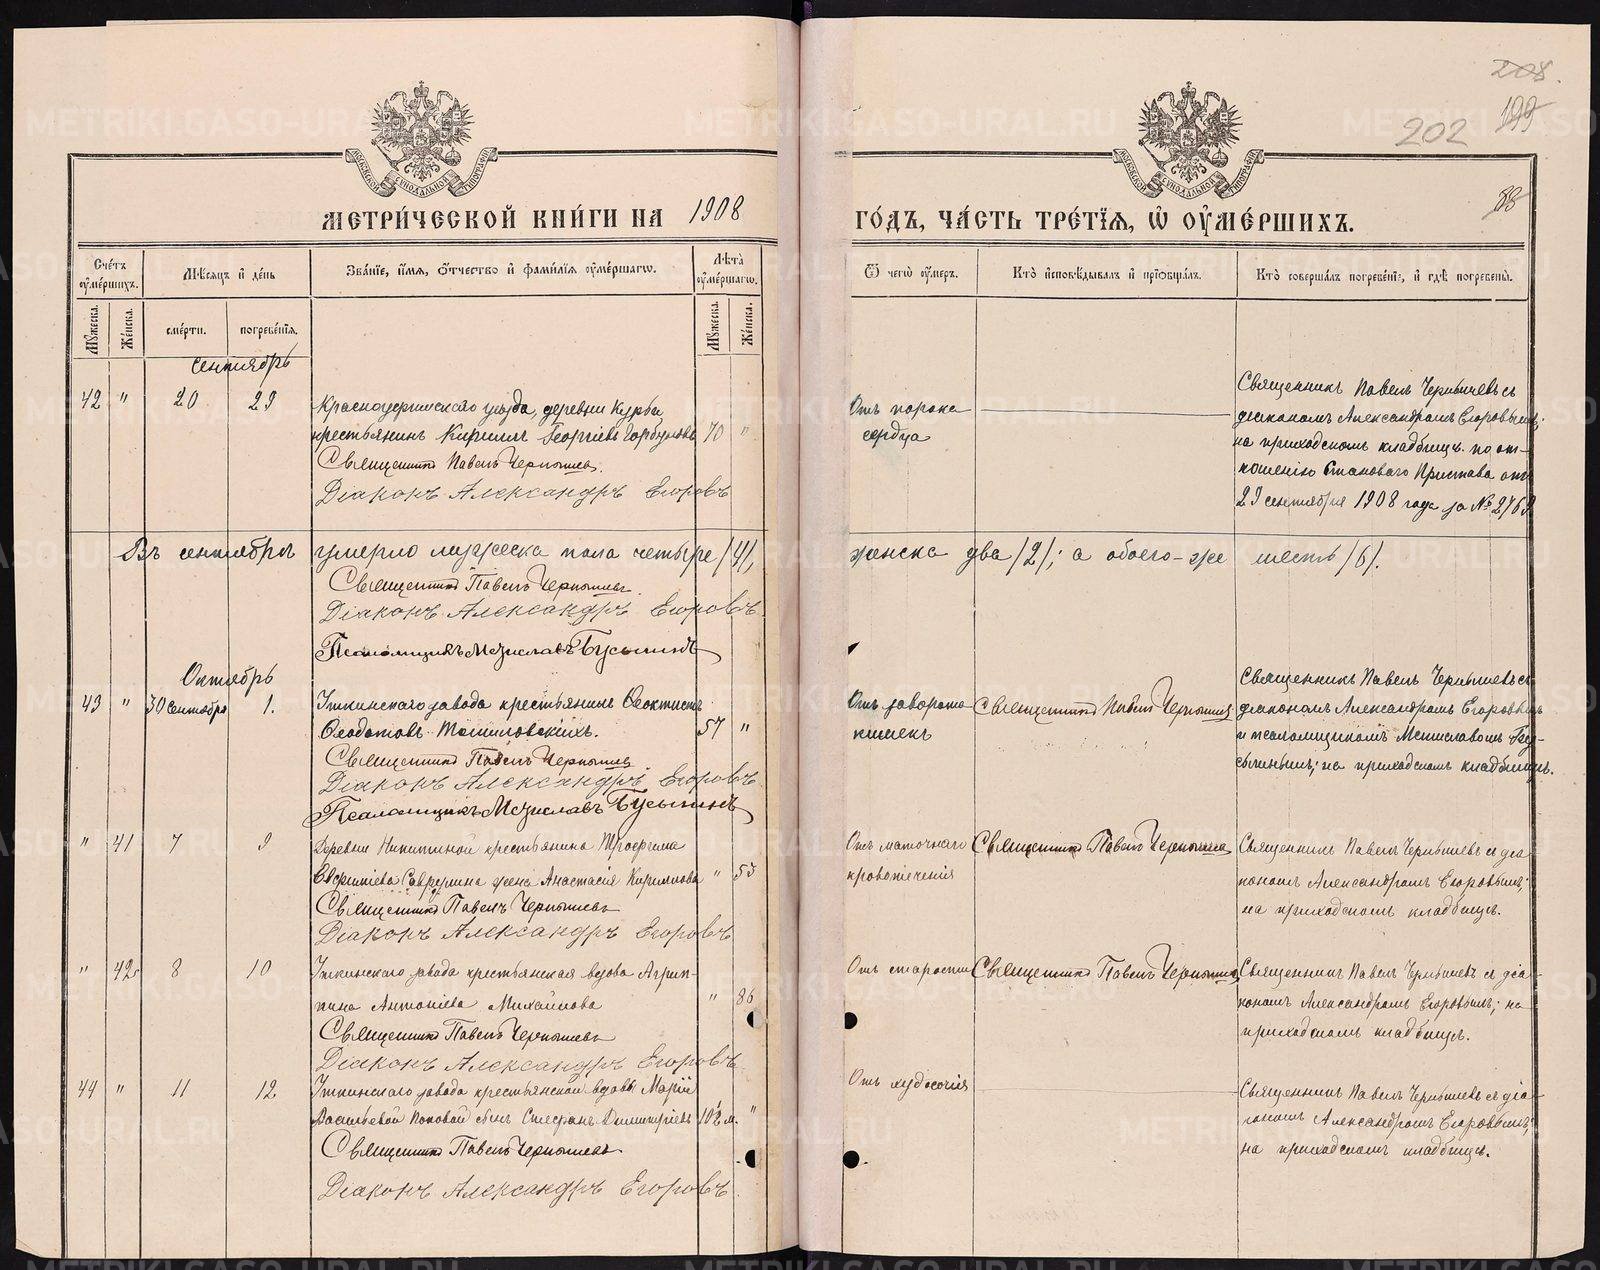 208.
199
202
88
МОСКОВСКОЙ СѴНОДАЛЬНОЙ ТИПОГРАФІИ
МОСКОВСКОЙ СѴНОДАЛЬНОЙ ТИПОГРАФІИ
МЕТРИ́ЧЕСКОЙ КНИ́ГИ НА 1908 ГО́ДЪ, ЧА́СТЬ ТРЕ́ТЇѦ, Ѡ҆ ОУ҆МЕ́РШИХЪ.
Сче́тъ оу҆ме́ршихъ.
Мѣ́сѧцъ и҆ де́нь
Зва́нїе, и҆́мѧ, ѻ҆́тчество и҆ фами́лїѧ оу҆ме́ршагѡ.
Лѣ́та оу҆ме́ршагѡ.
Ѿ чегѡ̀ оу҆́меръ.
Кто̀ и҆сповѣ́дывалъ и҆ прїѡбща́лъ.
Кто̀ соверша́лъ погребе́нїе, и҆ гдѣ̀ погребены̀.
Мꙋ́жеска.
Же́нска.
сме́рти.
погребе́нїѧ.
Мꙋ́жеска.
Же́нска.
Сентябрь
42 " 20 23
Красноуфимскаго уѣзда, деревни Курьи,
крестьянинъ Кириллъ Георгіевъ Горбуновъ 70 "
Священникъ Павелъ Чернышевъ.
Діаконъ Александръ Егоровъ
Отъ порока
сердца
Священникъ Павелъ Чернышевъ съ
діакономъ Александромъ Егоровымъ;
на приходскомъ кладбищѣ по от-
ношенію Становаго Пристава отъ
23 сентября 1908 года за №
Въ сентябрѣ умерло мужеска пола четыре /4/, женска два /2/; а обоего-же шесть /6/.
Священникъ Павелъ Чернышевъ.
Діаконъ Александръ Егоровъ.
Псаломщикъ Мстиславъ Бусыгинъ
Октябрь
43 " 30 сентября 1.
Уткинскаго завода крестьянинъ Ѳеоктистъ
Ѳеодотовъ Томиловскихъ. 57 "
Священникъ Павелъ Чернышевъ
Діаконъ Александръ Егоровъ
Псаломщикъ Мстиславъ Бусыгинъ
Отъ заворота
кишекъ
Священникъ Павелъ Чернышевъ
Священникъ Павелъ Чернышевъ съ
діакономъ Александромъ Егоровымъ
и псаломщикомъ Мстиславомъ Бу-
сыгинымъ; на приходскомъ кладбищѣ.
" 41 7 9
Деревни Никитиной крестьянина Трофима
Евфиміева жена Анастасія Кириллова " 53
Священникъ Павелъ Чернышевъ
Діаконъ Александръ Егоровъ
Отъ маточнаго
кровотеченія
Священникъ Павелъ Чернышевъ
Священникъ Павелъ Чернышевъ съ діа-
кономъ Александромъ Егоровымъ;
на приходскомъ кладбищѣ.
" 42 8 10
Уткинскаго завода крестьянская вдова Агрип-
пина Антоніева Михайлова " 86
Священникъ Павелъ Чернышевъ
Діаконъ Александръ Егоровъ
Отъ старости
Священникъ Павелъ Чернышевъ
Священникъ Павелъ Чернышевъ съ діа-
кономъ Александромъ Егоровымъ; на
приходскомъ кладбищѣ.
44 " 11 12
Уткинскаго завода крестьянской вдовы Маріи
Васильевой Поповой сынъ Димитріевъ "
Священникъ Павелъ Чернышевъ
Діаконъ Александръ Егоровъ.
Отъ худосочія
Священникъ Павелъ Чернышевъ съ діа-
кономъ Александромъ Егоровымъ;
на приходскомъ кладбищѣ.
METRIKI.GASO-URAL.RU